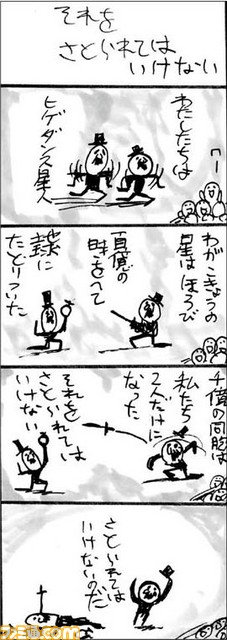 それを
さとられては
いけない
わたしたちは
ヒゲダンス星人
わがこきょうの
星はほろび
百億の
時をへて
地球に
たどりついた
千億の同胞は
私たち
2人だけに
なった
それを
さとられては
いけない
さとられては
いけないのだ
ファミ通.com